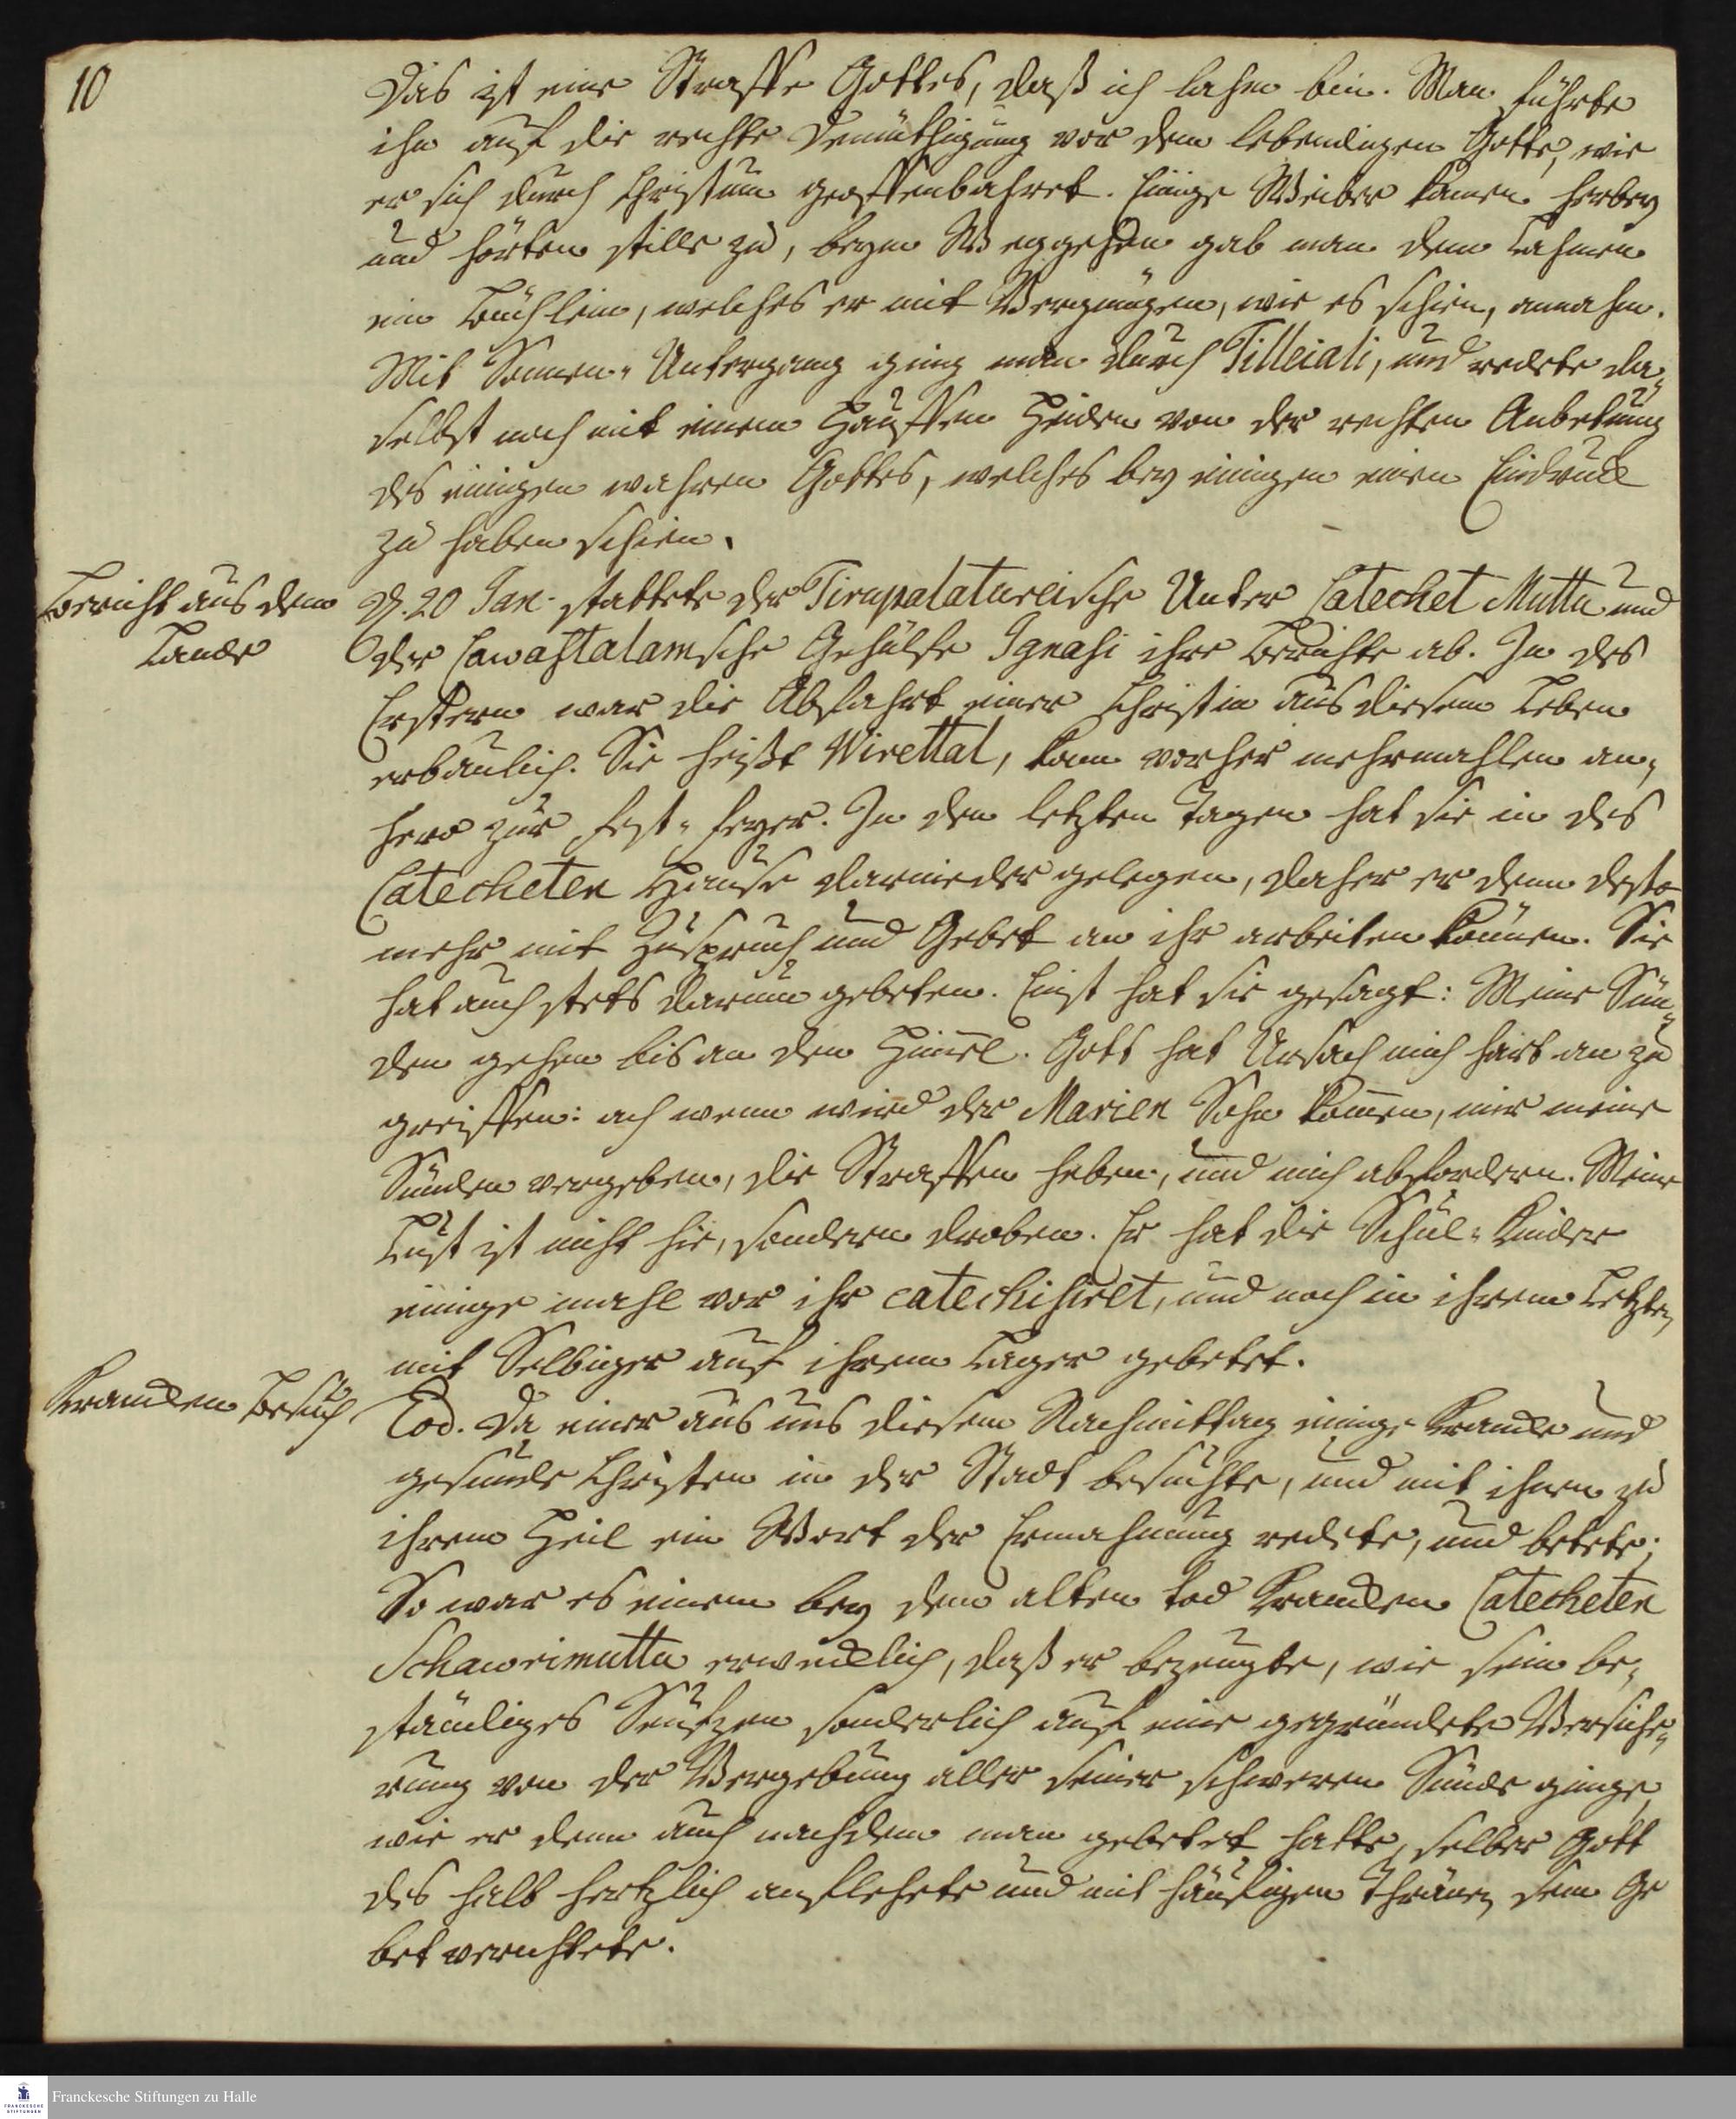 10
Das ist eine Straffe Gottes, daß ich lahm bin. Man führte
ihn auf die rechte Demüthigung vor dem lebendigen Gotte, wie
er sich durch Christum geoffenbahret. Einige Weiber kamen herbey
und hörten stille zu, beym Weggehen gab man dem Lahmen
ein Büchlein, welches er mit Vergnügen, wie es schien, annahm.
Mit Sonnen-Untergang ging man durch Tilleiali, und redete da-
selbst noch mit einem Hauffen Heiden von der rechten Anbetung
des einigen wahren Gottes, welches bey einigen einen Eindruck
zu haben schien.
Bericht aus dem
Lande
D. 20 Jan. stattete der Tirupalatureische Unter Catechet Muttu und
der Cawastalamsche Gehülfe Ignasi ihre Berichte ab. In des
Erstern war die Abfahrt einer Christin aus diesem Leben
erbaulich. Sie heißt Wirettal, kam vorher mehrmahlen an-
hero zur Fest-Feyer. In den letzten Tagen hat sie in des
Catecheten Hause darnieder gelegen, daher er denn desto
mehr mit Zuspruch und Gebet an ihr arbeiten können. Sie
hat auch stets darum gebeten. Einst hat sie gesagt: Meine Sün-
den gehen bis an den Him̅el. Gott hat Ursach mich hart an zu
greiffen: ach wenn wird der Marien Sohn kom̅en, mir meine
Sünden vergeben, die Straffen heben, und mich abfordern. Meine
Lust ist nicht hie, sondern droben. Er hat die Schul-Kinder
einige mahl vor ihr catechisiret, und noch in ihrem Letzten
mit Selbiger auf ihrem Lager gebetet.
Krancken Besuch
Eod. Da einer aus uns diesen Nachmittag einige Krancke und
gesunde Christen in der Stadt besuchte, und mit ihnen zu
ihrem Heil ein Wort der Ermahnung redete, und betete;
So war es einem bey dem alten tod Krancken Catecheten
Schawrimuttu erwecklich, daß er bezeugte, wie sein be-
ständiges Seufzen sonderlich auf eine gegründete Versiche-
rung von der Vergebung aller seiner schweren Sünde ginge,
wie er denn auch nachdem man gebetet hatte, selber Gott
des halb hertzlich anflehete und mit häufigen Thränen sein Ge
bet verrichtete.
Franckesche Stiftungen zu Halle
FRANCKESCHE
STIFTUNGEN